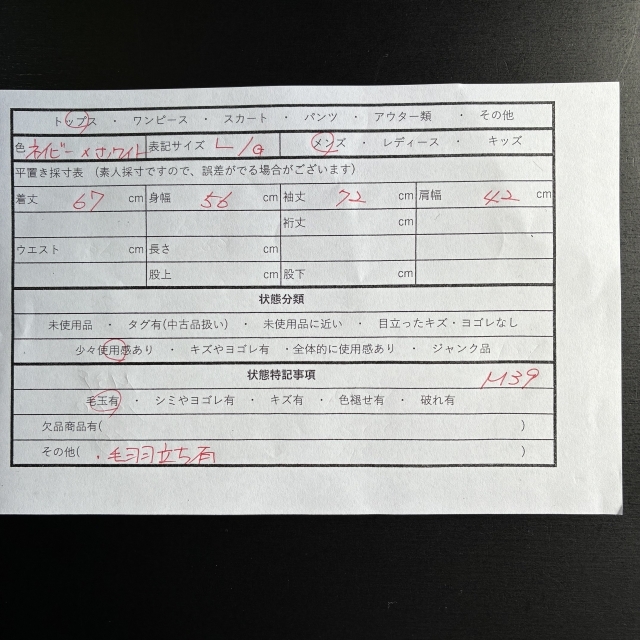 トップス ・ ワンピース ・ スカート ・ パンツ ・ アウター類 ・ その他
色 ネイビー×ホワイト 表記サイズ L/G メンズ ・ レディース ・ キッズ
平置き採寸表 (素人採寸ですので、誤差がでる場合がございます)
着丈 67 cm 身幅 56 cm 袖丈 72 cm 肩幅 42 cm
裄丈 cm
ウエスト cm 長さ cm
股上 cm 股下 cm
状態分類
未使用品 ・ タグ有(中古品扱い) ・ 未使用品に近い ・ 目立ったキズ・ヨゴレなし
少々使用感あり ・ キズやヨゴレ有 ・全体的に使用感あり ・ ジャンク品
状態特記事項 M39
毛玉有 ・ シミやヨゴレ有 ・ キズ有 ・ 色褪せ有 ・ 破れ有
欠品商品有( )
その他( ・毛羽立ち有 )